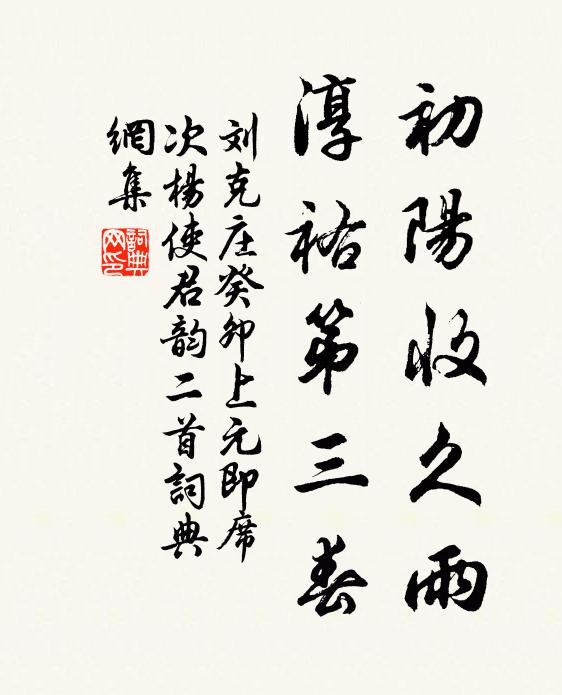 初陽收久雨
淳祐第三春
刘克庄癸卯上元即席
次楊使君韵二首詞典
網集
詞典网印